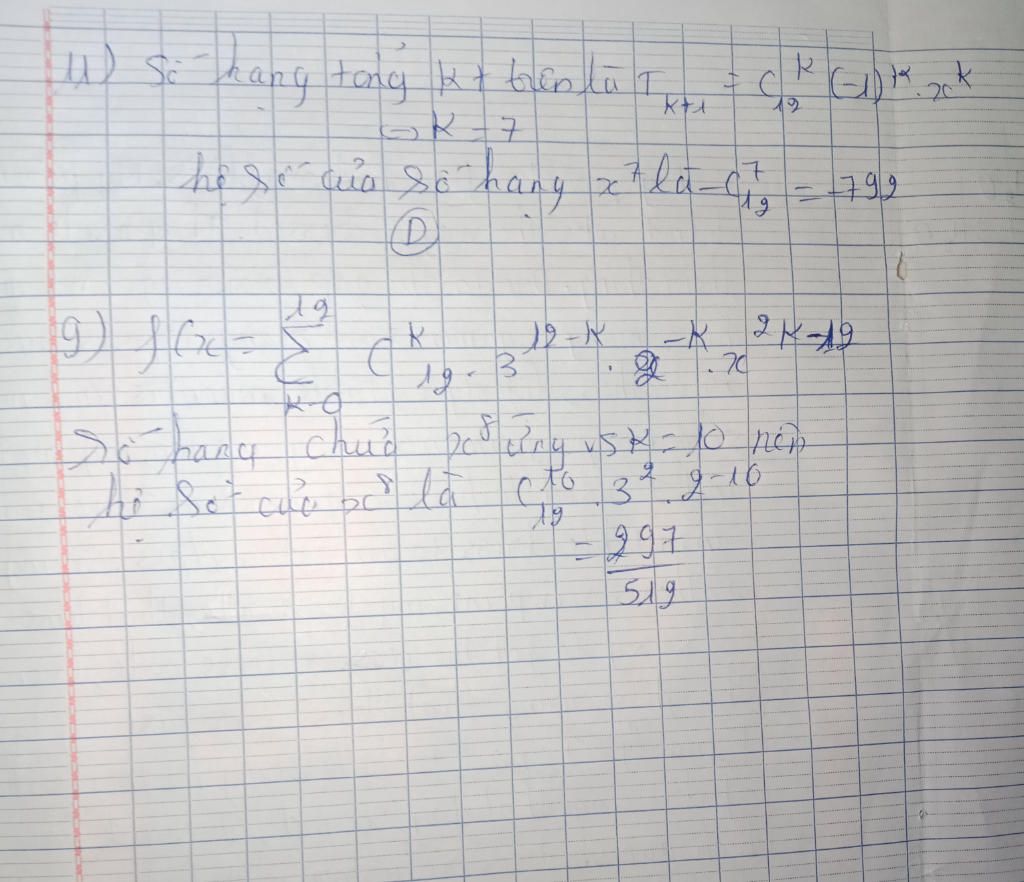 11) Số hạng tổng kt trên là T_{k+1} = C_{12}^{k} (-1)^{k}. x^{k}
⇔ K = 7
hệ số của số hạng x^7 là -C_{12}^{7} = -792
D
9) f(x = \sum_{k=0}^{12} C_{12}^{k} . 3^{12-k} . 2^{-k} . x^{2k-12}
Số hạng chứa x^8 ứng vs K = 10 nên
hệ số của x^8 là C_{12}^{10} . 3^2 . 2^{-10}
= \frac{297}{512}